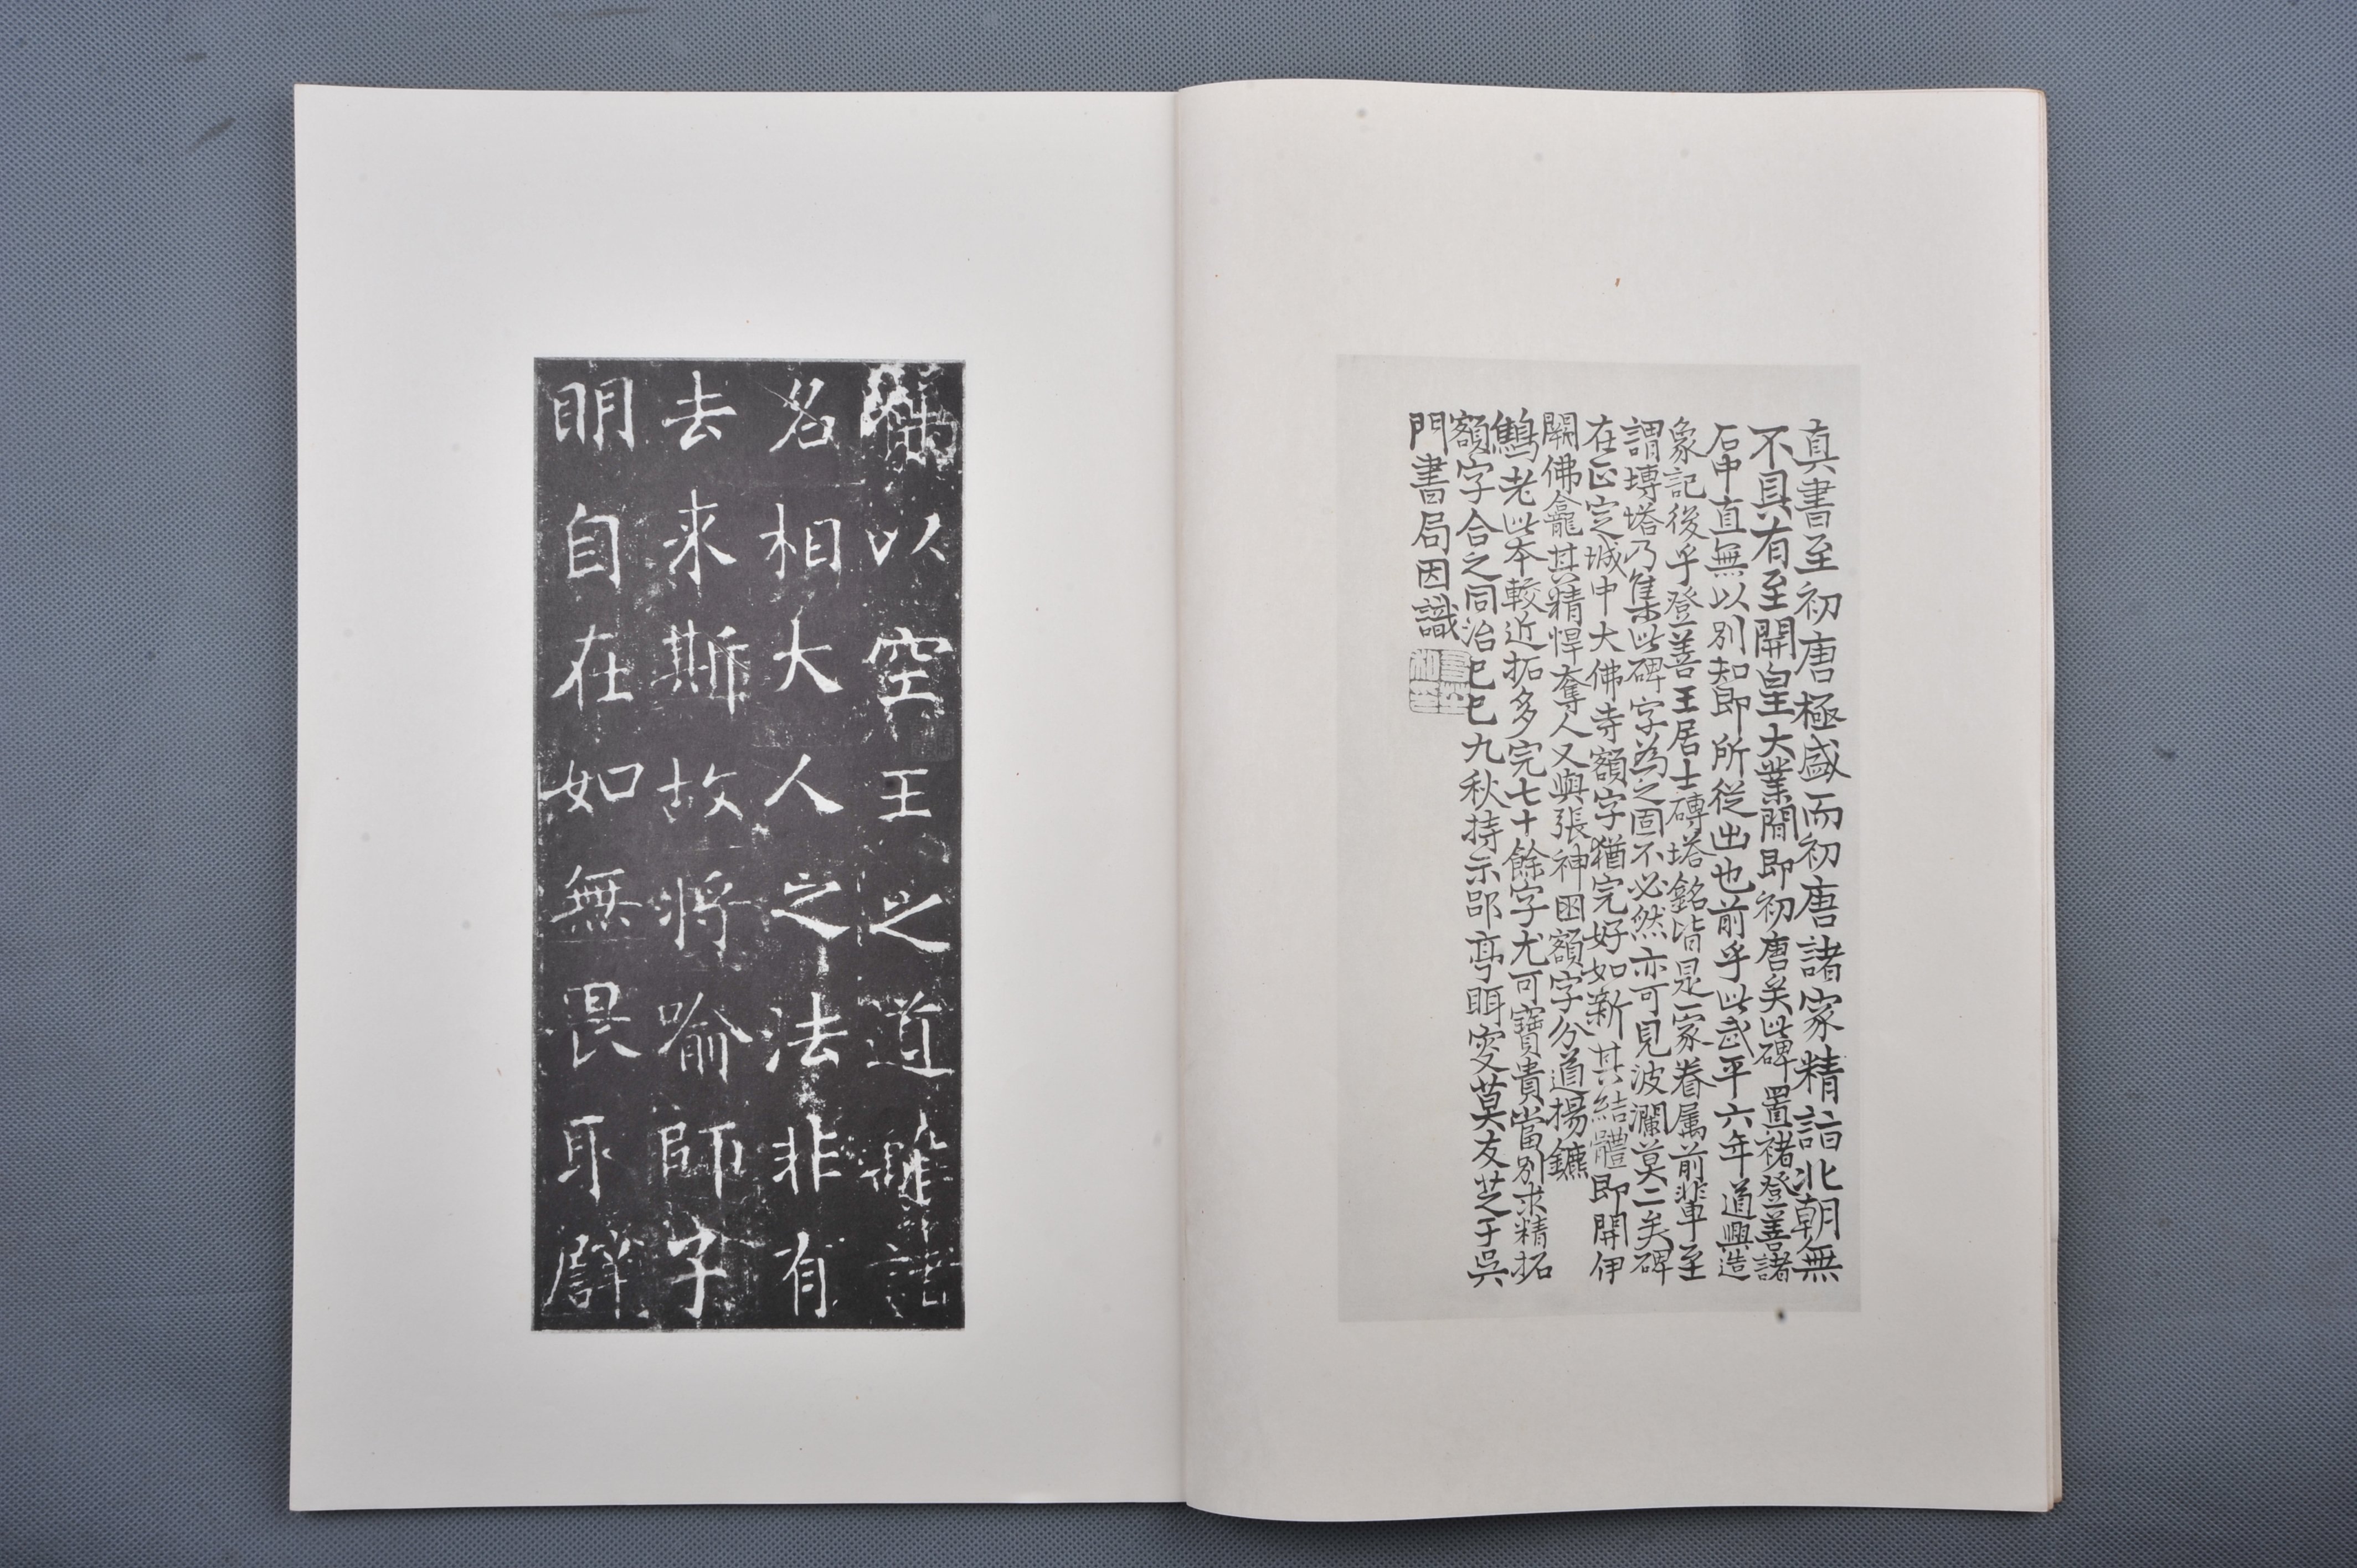 真書至初唐極盛而初唐諸家精詣北朝無
不具有至開皇大業間即初唐矣此碑置褚登善諸
石中直無以別知即所從出也前乎此武平六年道興造
象記後乎登善王居士磚塔銘皆是一家眷屬前輩至
謂塼塔乃集此碑字為之固不必然亦可見波瀾莫二矣碑
在正定城中大佛寺額字猶完好如新其結體即開伊
闕佛龕其精悍奪人又與張神囧額字分道揚鑣
鶴老此本較近拓多完七十餘字尤可寶貴當別求精拓
額字合之同治己巳九秋持示郘亭眲叟莫友芝于吳
門書局因識
以空王之道離諸
名相大人之法非有
去来斯故將喻師字
明自在如無畏取譬